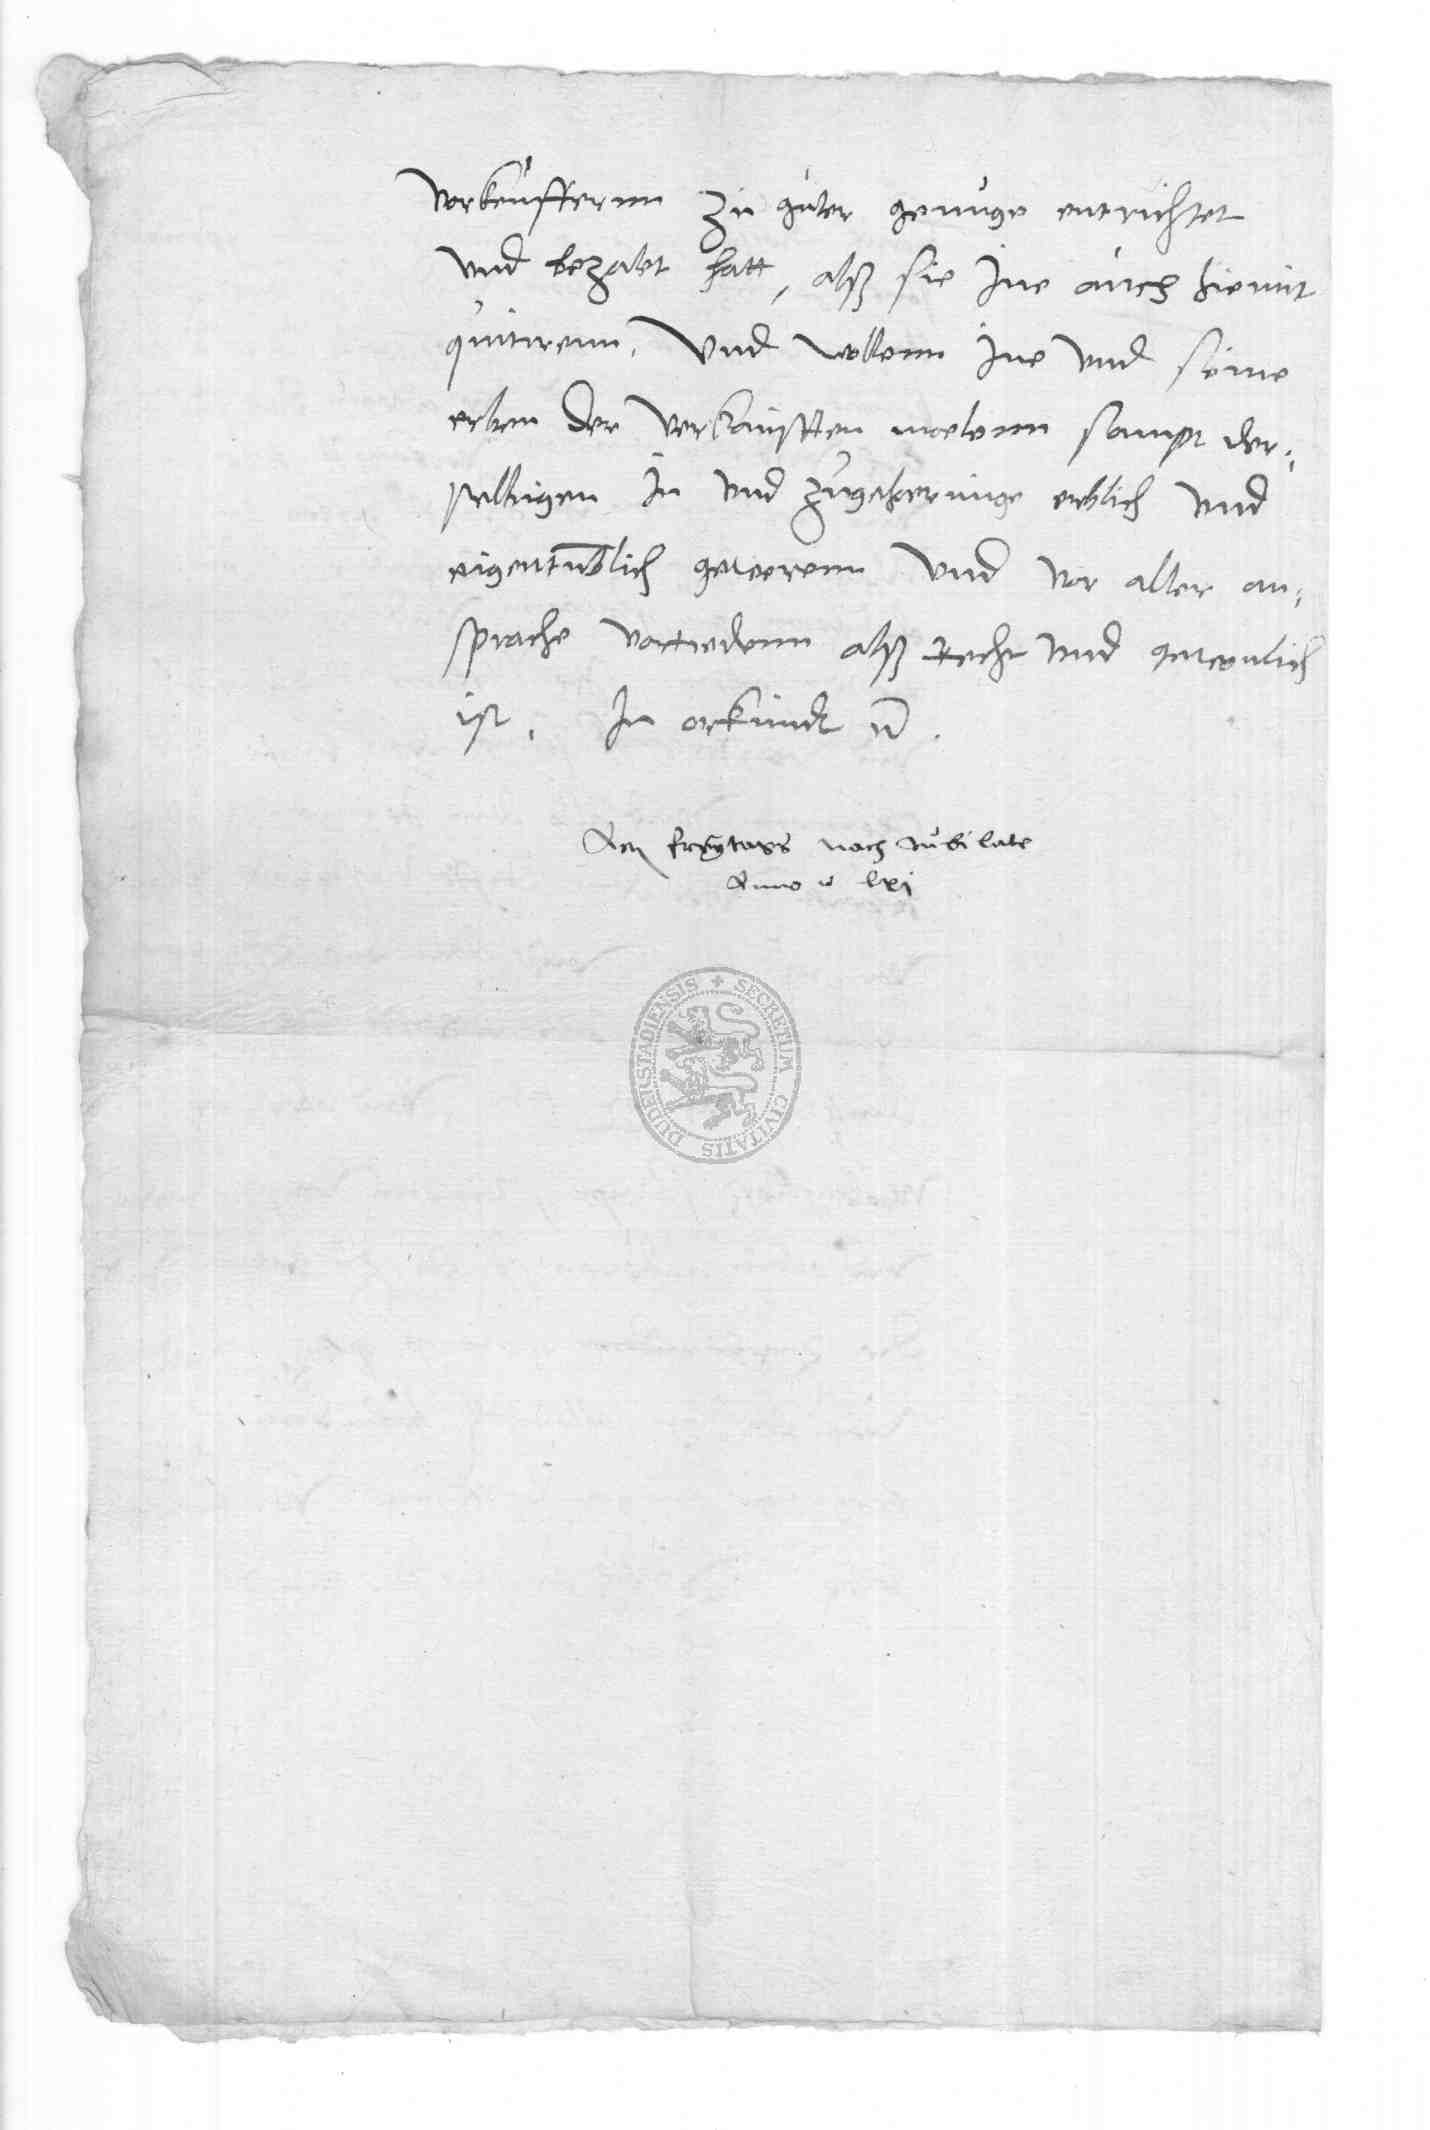 vorkeuffernn zu guter genuge entrichtet
und bezalet hatt, alß sie Ine auch hiemit
quitirenn, Und wollenn Ine und seine
erben der verkaufften moelenn sampt der-
selbigen In und zugehorunge erblich und
eigentumblich geweerenn und vor aller an-
sprache vortredenn alß Recht und gewonlich
ist. In orkundt
Am freytags nach Jubilate
Anno lxi
SECRETUM CIVITATIS DUDERSTADIENSIS